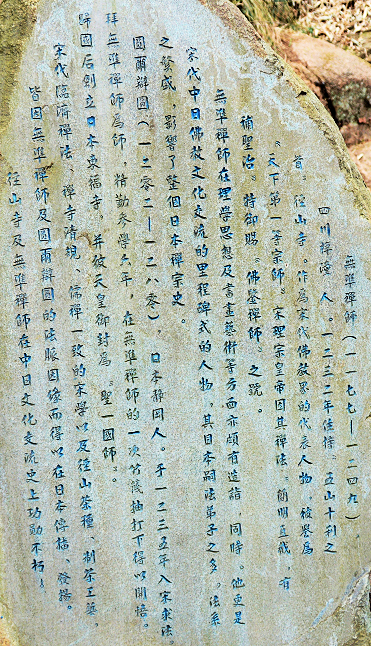 無準禪師（一一七七——一二四九）
四川梓潼人。一二三二年住持“五山十刹之
首”徑山寺。作爲宋代佛教界的代表人物，被譽爲
“天下第一等宗師”。宋理宗皇帝因其禪法“簡明直截，有
補聖治”。特御賜“佛鑒禪師”之號。
無準禪師在理學思想及書畫藝術等方面亦頗有造詣，同時。他更是
宋代中日佛教文化交流的里程碑式的人物，其日本嗣法弟子之多。法系
之繁盛，影響了整個日本禪宗史。
圓爾辯圓（一二零二——一二八零），日本靜岡人。于一二三五年入宋求法。
拜無準禪師爲師，精勤參學六年，在無準禪師的一次竹篾抽打下得以開悟。
歸國后創立日本東福寺。并被天皇御封爲“聖一國師”。
宋代臨濟禪法、禪寺清規、儒禪一致的宋學以及徑山茶種、制茶工藝，
皆因無準禪師及圓爾辯圓的法脈因緣而得以在日本傳播、發揚。
徑山寺及無準禪師在中日文化交流史上功勛不朽！